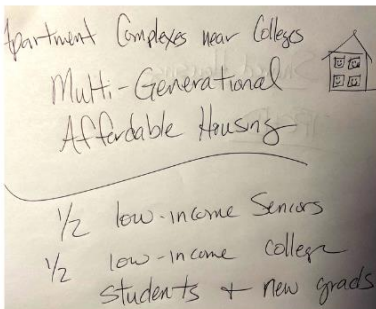 Apartment Complexes near Colleges
Multi-Generational
Affordable Housing
1/2 low-income Seniors
1/2 low-income college
students + new grads